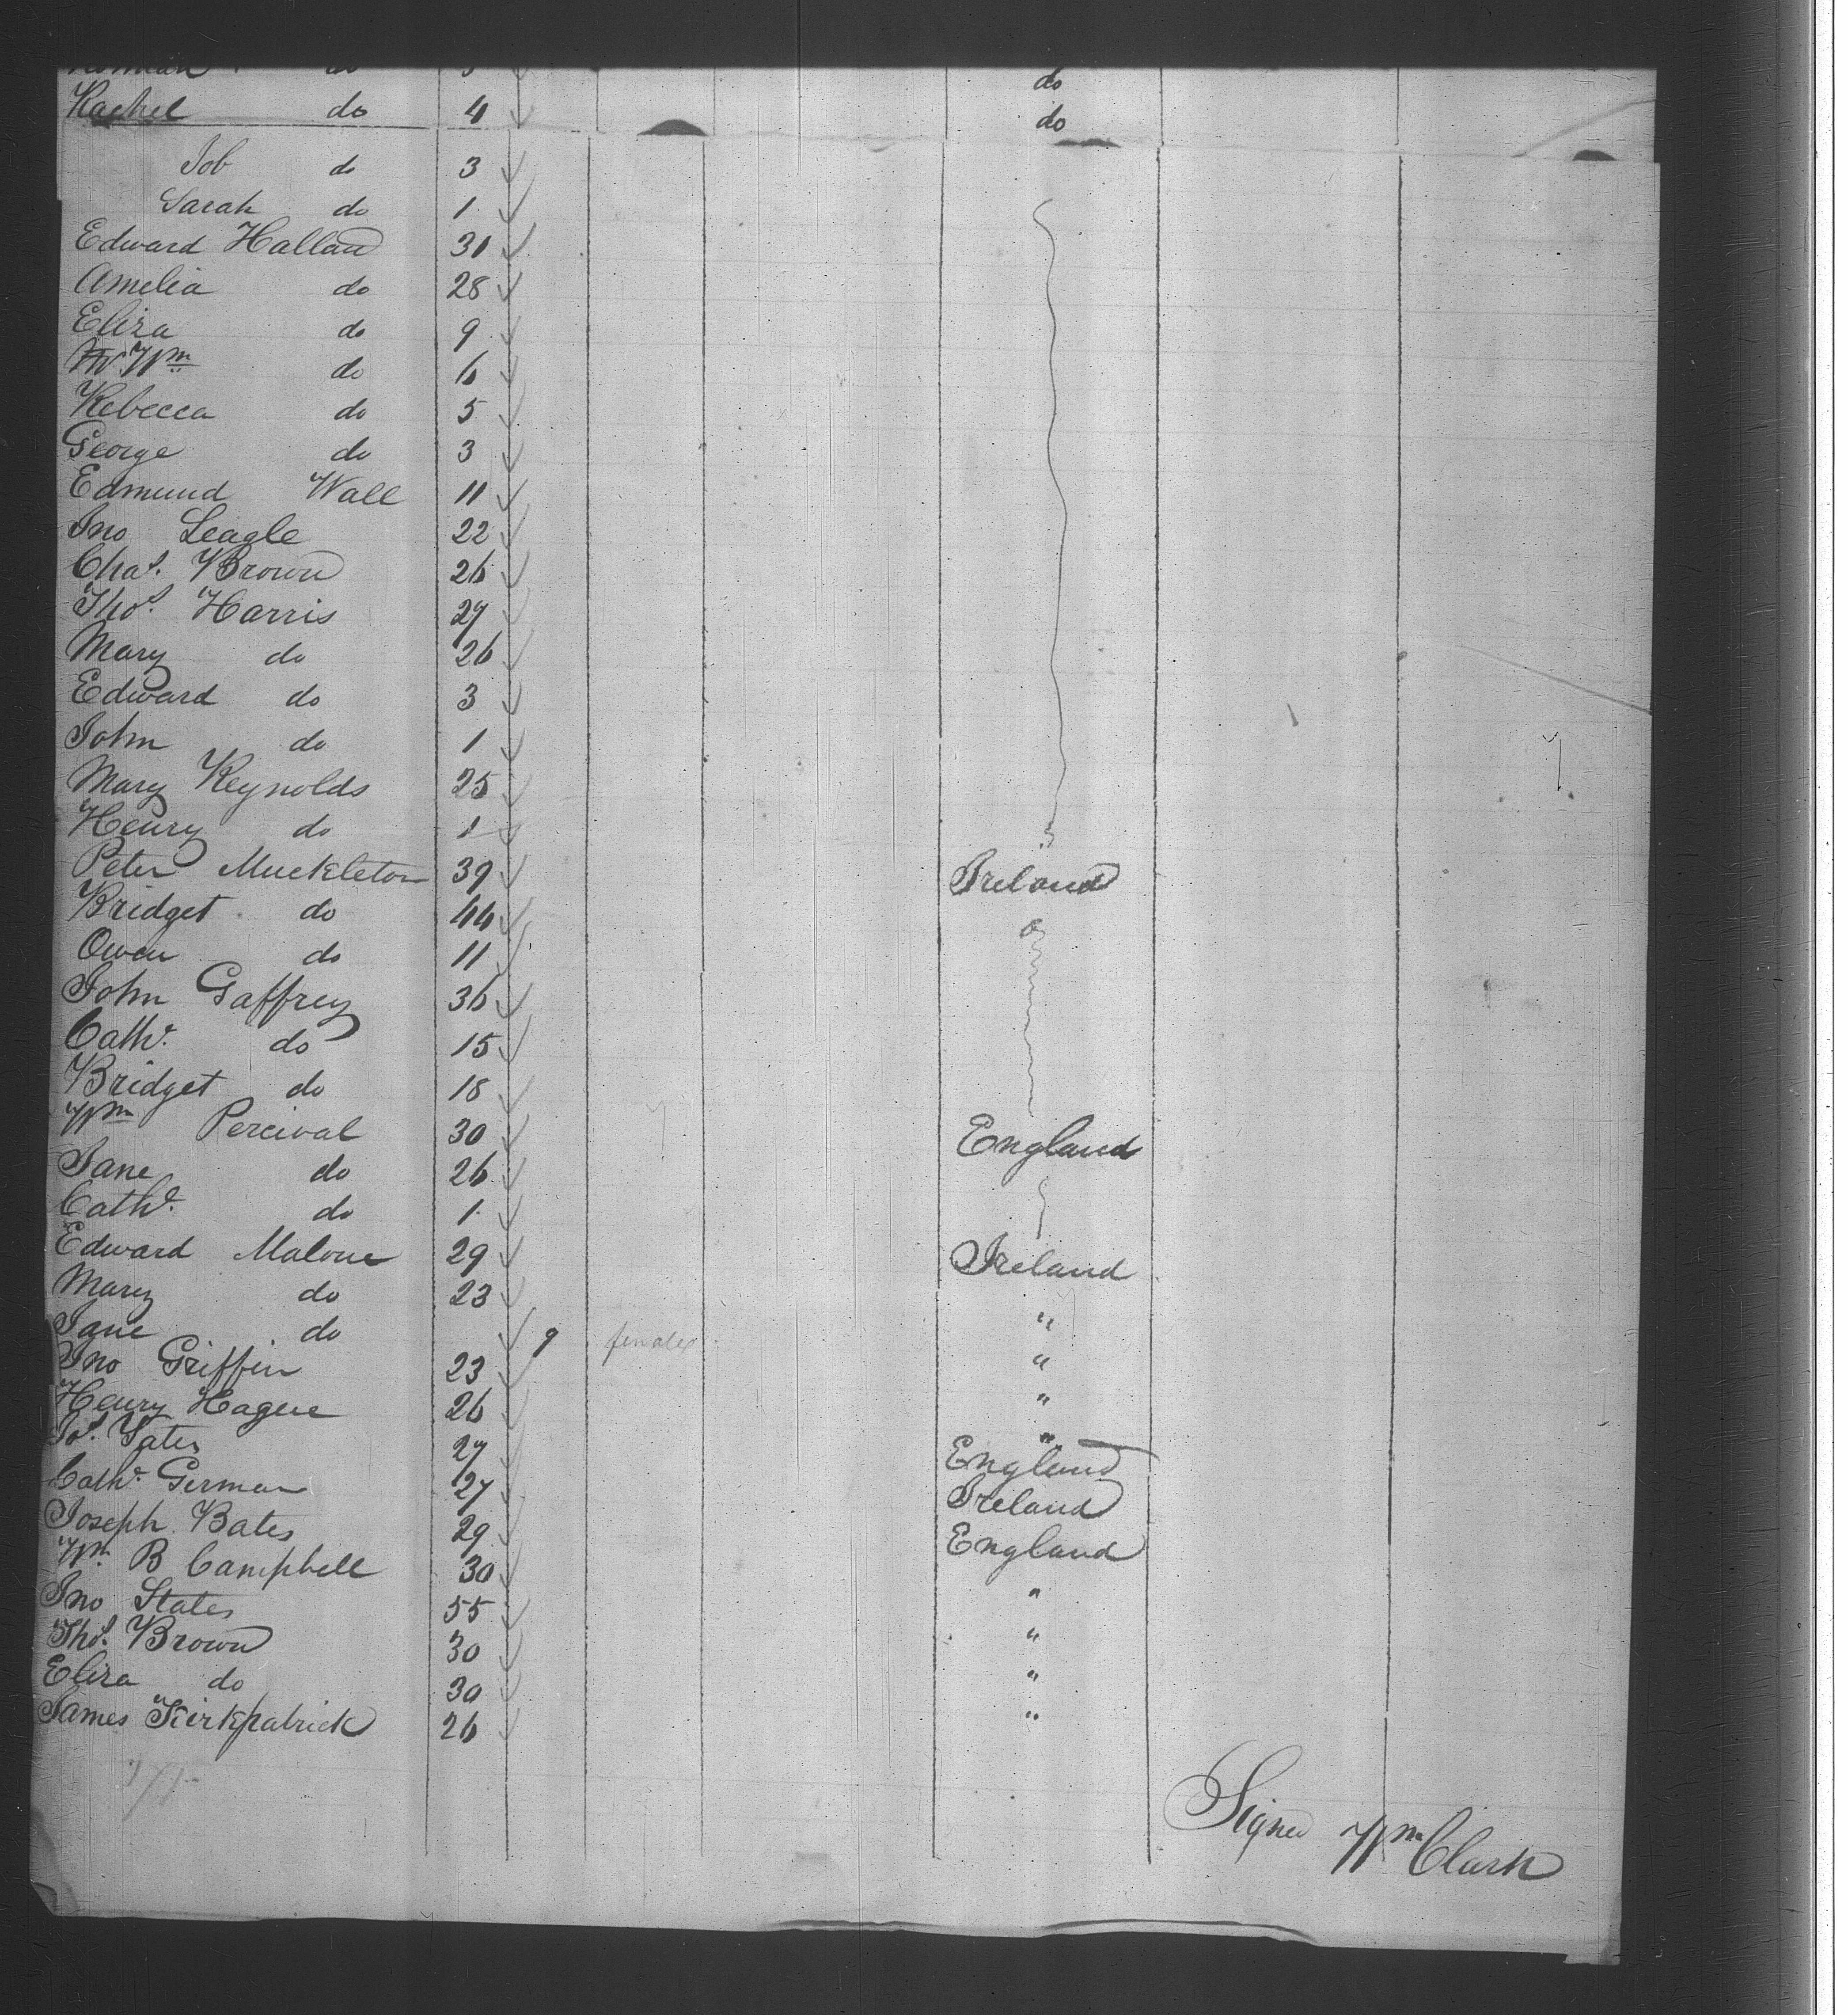 do
Rachel do 4 do
Job do 3
Sarah do 1
Edward Hallam 31
Amelia do 28
Eliza do 9
Wm do 6
Rebecca do 5
George do 3
Edmund Wall 11
Jno Seagle 22
Chas. Brown 26
Thos. Harris 27
Mary do 26
Edward do 3
John do 1
Mary Reynolds 25
Henry do 1
Peter Muckleton 39 Ireland
Bridget do 44
Owen do 11
John Gaffrey 36
Cathe. do 15
Bridget do 18
Wm Percival 30 England
Jane do 26
Cathe. do 1
Edward Malone 29 Ireland
Mary do 23 "
Jane do 9 females "
Jno Griffin 23 "
Henry Hague 26 "
Jos. Yates 27 England
Cathe. German 27 Ireland
Joseph Bates 29 England
Wm. B Campbell 30 "
Jno States 55 "
Thos. Brown 30 "
Eliza do 30 "
James Kirkpatrick 26
Signed Wm Clark